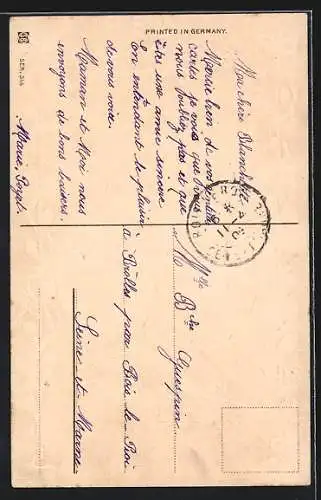 PRINTED IN GERMANY.
SER. 344
Ma chère Blanchette
Merci bien de vos gentilles
cartes je vois que vous
nous oubliez pas et que
êtes une amie sincère
En attendant le plaisir
de vous voir.
Maman et Moi nous
envoyons de bons baisers.
Marie
Mlle
Bche Guespin
à Brolles par Bois le Roi
Seine-et-Marne